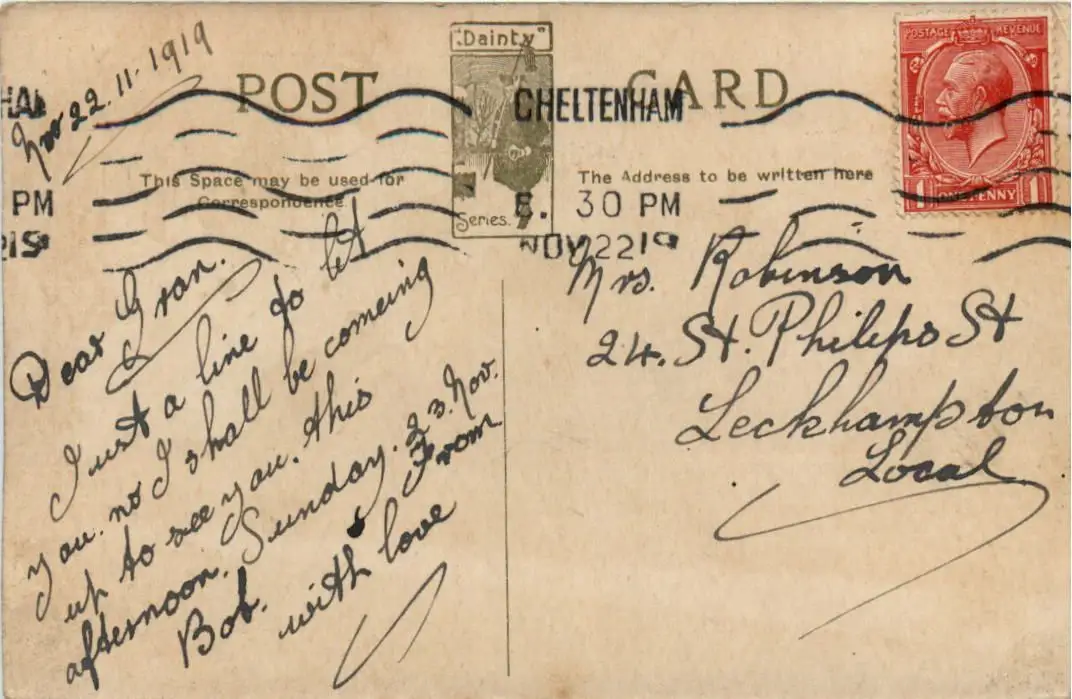 Nov 22.11.1919
POST CARD
"Dainty"
Series.
This Space may be used for
Correspondence
The Address to be written here
CHELTENHAM
8. 30 PM
NOV 22 19
HAM
PM
19
POSTAGE REVENUE
1 ONE PENNY 1
Dear Gran.
Just a line to let
you no I shall be comeing
up to see you. this
afternoon. Sunday. 23. Nov.
From
Bob. with love
Mrs. Robinson
24. St. Philips St
Leckhampton
Local